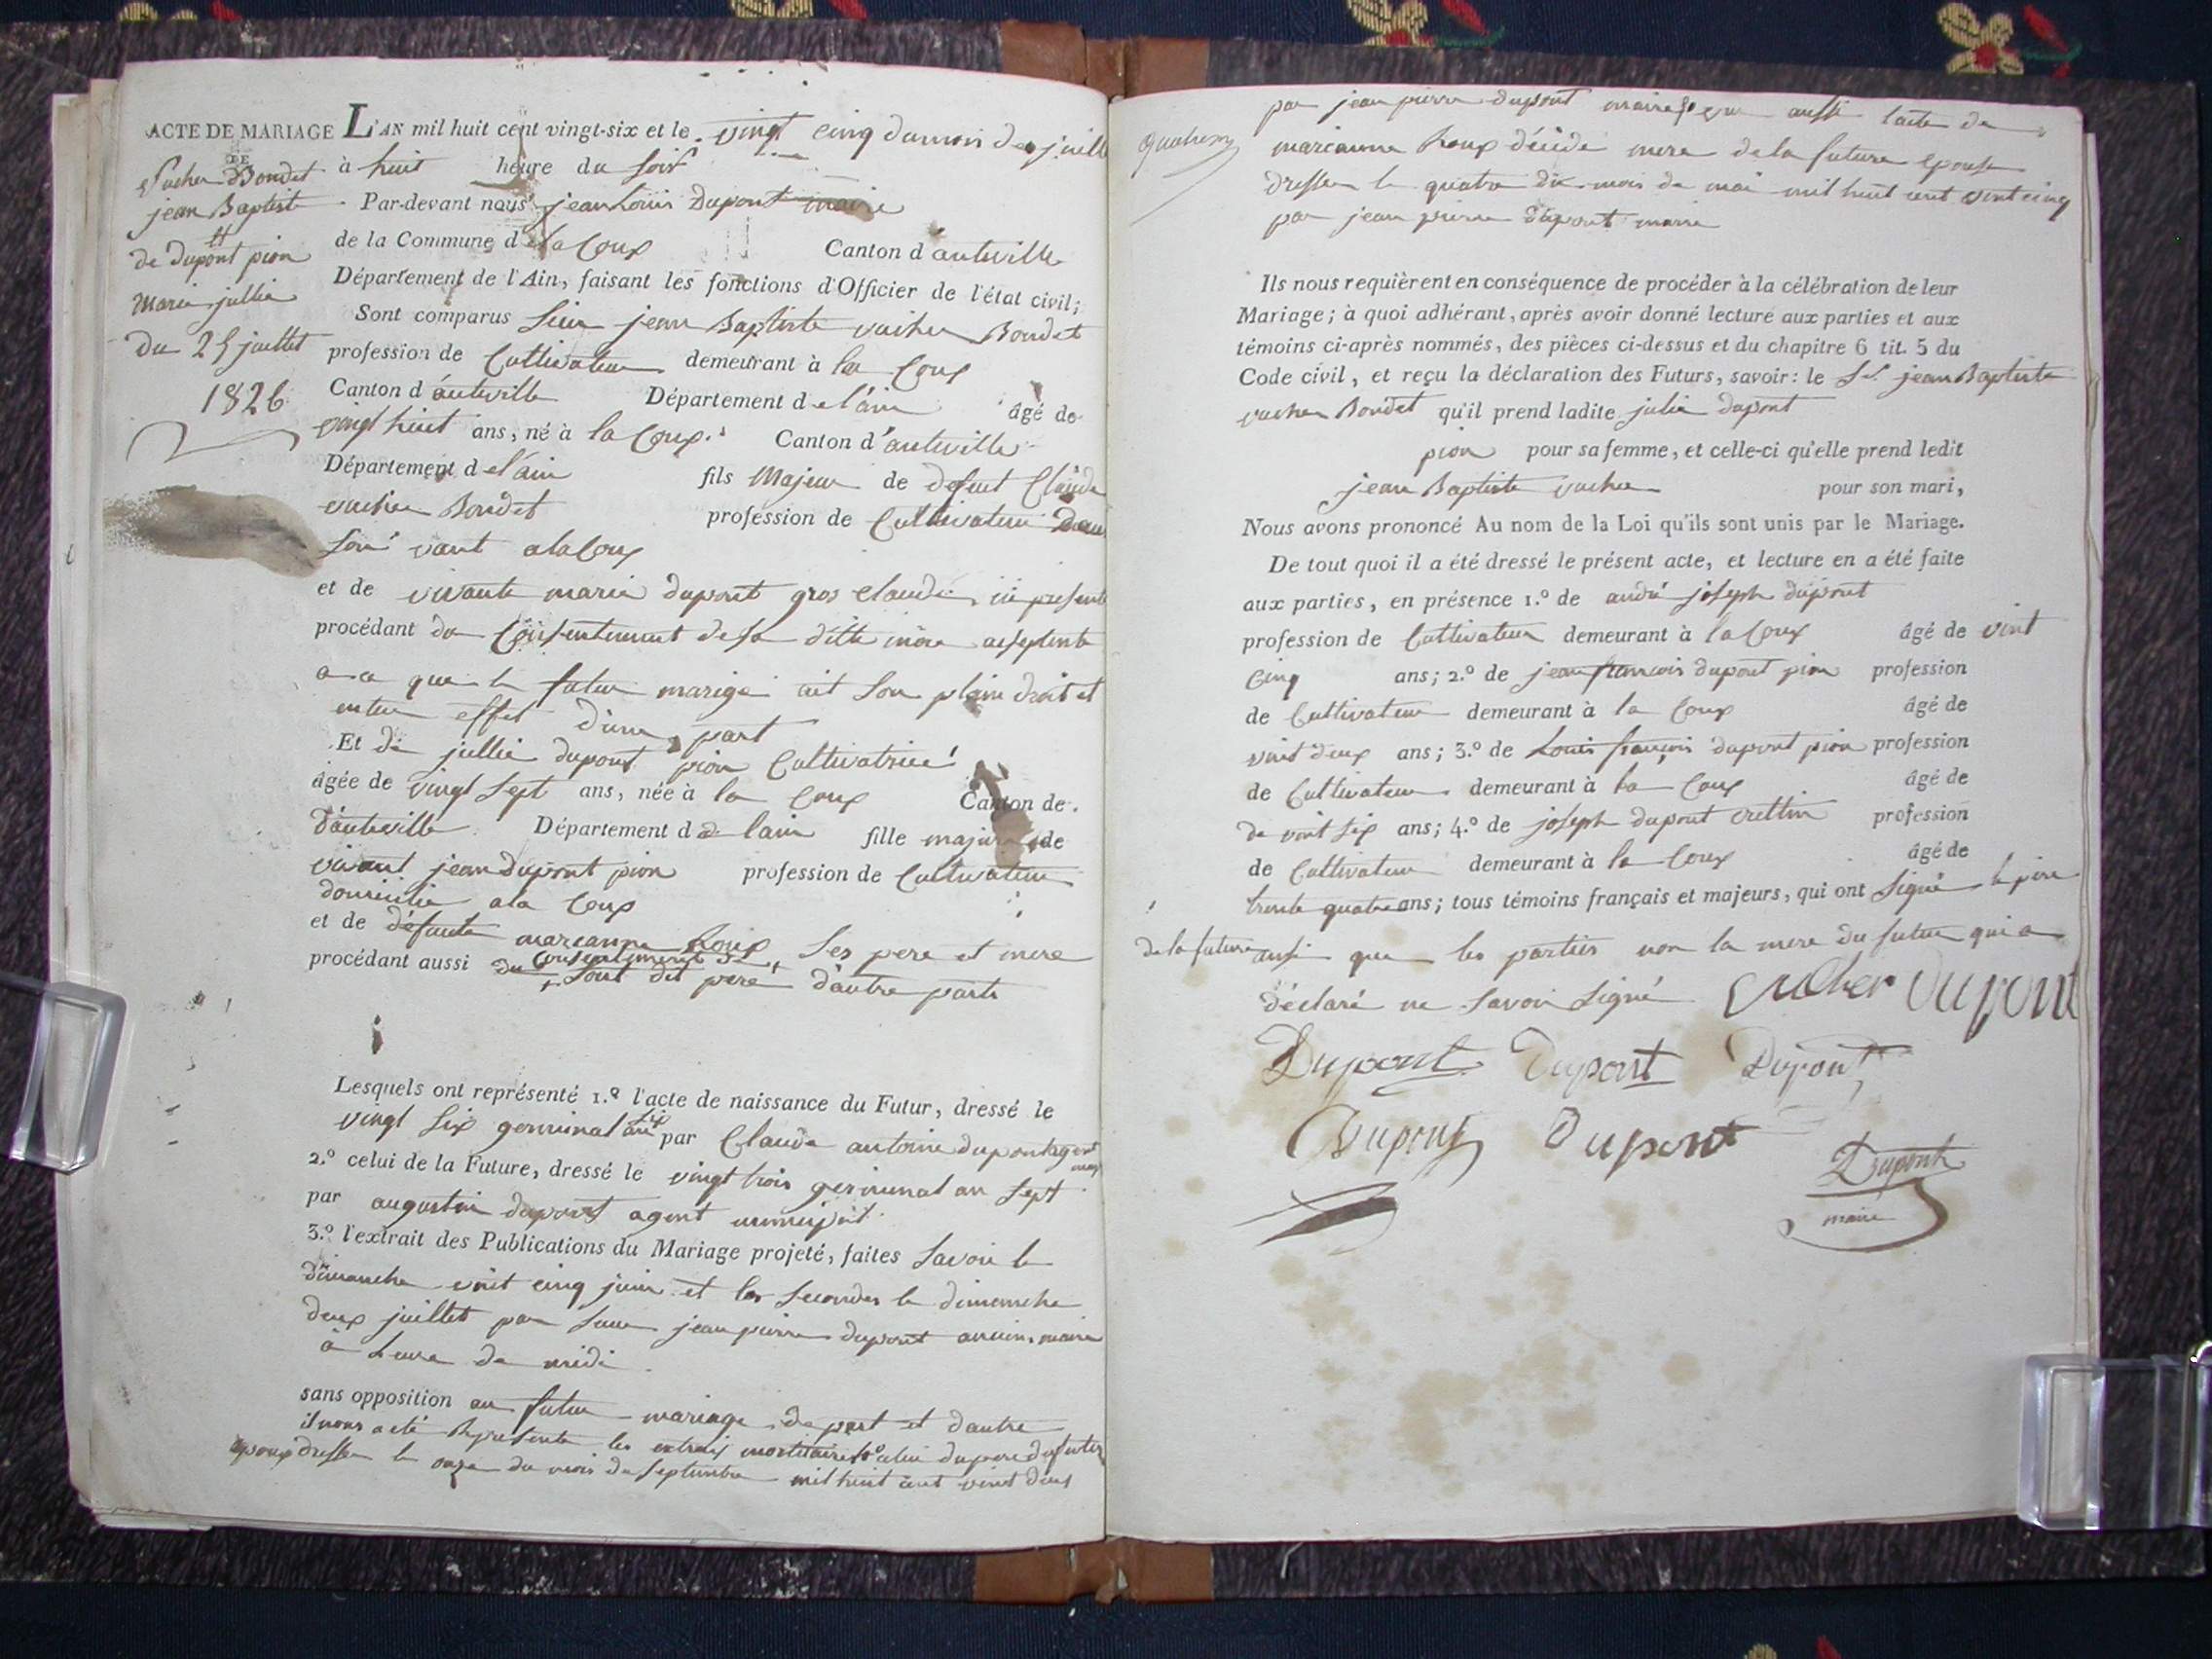 ACTE DE MARIAGE
DE
Vucher Bondet
jean Baptiste
et
de dupont pion
Marie jullie
du 25 juillet
1826
L'AN mil huit cent vingt-six et le vingt cinq du mois de juille
à huit heure du soir
Par-devant nous jean Louis Dupont maire
de la Commune d la Coux Canton d'auteville
Département de l'Ain, faisant les fonctions d'Officier de l'état civil;
Sont comparus Sieur jean Baptiste vucher Bondet
profession de Cultivateur demeurant à la Coux
Canton d'auteville Département de l'ain âgé de
vingt huit ans, né à la Coux. Canton d'auteville
Département de l'ain fils Majeur de defunt Claude
vucher Bondet profession de Cultivateur dans
son vivant a la Coux
et de vivante marie dupont gros claude, ici presente
procédant du Consentement de sa ditte mère acseptente
a ce que le futur marige ait son plain droit et
entier effet d'une part
Et de jullie dupont pion Cultivatrice
âgée de vingt sept ans, née à la Coux Canton de
d'auteville Département d de lain fille majure de
vivant jean dupont pion profession de Cultivateur
domicilie a la Coux
et de défunte marianne houx ses pere et mere
procédant aussi du Consentement de sont dit pere d'autre parts
Lesquels ont représenté 1.º l'acte de naissance du Futur, dressé le
vingt six germinal an six par Claude antoine dupont agent
2.º celui de la Future, dressé le vingt trois germinal an sept
par augustin dupont agent municipal
3.º l'extrait des Publications du Mariage projeté, faites savoir le
dimanche vint cinq juin et les secondes le dimenche
deux juillet par sieur jean pierre dupont ancien maire
à heure de midi
sans opposition au futur mariage de part et d'autre
il nous a eté Représenté les extrais mortuaires 1º celui du pere du futur
epoux dresser le onze du mois de septembre mil huit cent vint deux
par jean pierre dupont maire que aussi l'acte de
marianne houx décidé mere de la future epouse
dresser le quatre du mois de mai mil huit cent vint cinq
par jean pierre dupont maire
Ils nous requièrent en conséquence de procéder à la célébration de leur
Mariage; à quoi adhérant, après avoir donné lecture aux parties et aux
témoins ci-après nommés, des pièces ci-dessus et du chapitre 6 tit. 5 du
Code civil, et reçu la déclaration des Futurs, savoir: le Sr. jean Baptiste
vucher Bondet qu'il prend ladite julie dupont
pion pour sa femme, et celle-ci qu'elle prend ledit
jean Baptiste vucher pour son mari,
Nous avons prononcé Au nom de la Loi qu'ils sont unis par le Mariage.
De tout quoi il a été dressé le présent acte, et lecture en a été faite
aux parties, en présence 1.º de andré joseph dupont
profession de Cultivateur demeurant à la Coux âgé de vint
Cinq ans; 2.º de jean françois dupont pion profession
de Cultivateur demeurant à la Coux âgé de
vint deux ans; 3.º de Louis françois dupont pion profession
de Cultivateur demeurant à la Coux âgé de
de vint six ans; 4.º de joseph dupont crettin profession
de Cultivateur demeurant à la Coux âgé de
trente quatre ans; tous témoins français et majeurs, qui ont signé le père
de la future ainsi que les parties non la mere du futur qui a
déclaré ne savoir signé Vucher Dupont
Dupont Dupont Dupont
Dupont Dupont
Dupont
maire